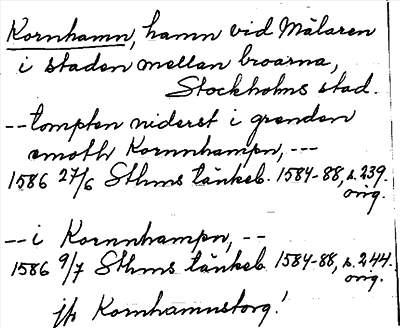 Kornhamn, hamn vid Mälaren
i staden mellan broarna,
Stockholms stad.
--tompten niderst i grenden
emoth Kornnhampn, ---
1586 27/6 Sthms tänkeb. 1584-88, s. 239.
orig.
-- i Kornnhampn, --
1586 9/7 Sthms tänkeb 1584-88, s. 244.
orig.
jfr Kornhamnstorg!